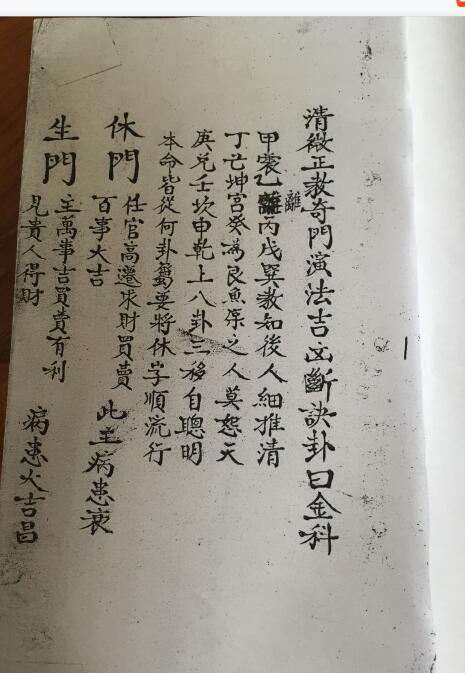 清微正教奇門演法吉凶斷訣卦曰金科
甲震乙離丙戊巽教知後人細推清
離
丁亡坤宮癸為艮魚深之人莫怨天
庚兌壬坎申乾上八卦三移自聰明
本命皆從何卦籌要將休字順流行
休門
任官高遷求財買賣
百事大吉
此主病患衰
生門
主萬事吉買賣有利
見貴人得財
病患大吉昌